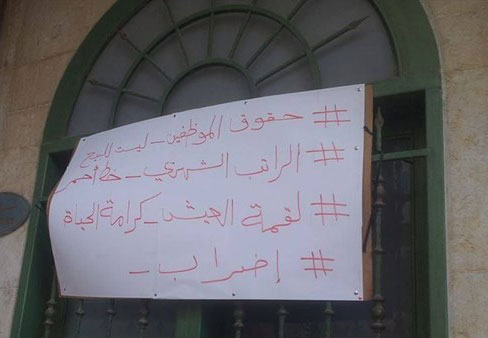 # حقوق الموظفين - ليست للبيع
# الراتب الشهري - خط أحمر
# لقمة العيش - كرامة الحياة
# إضراب -